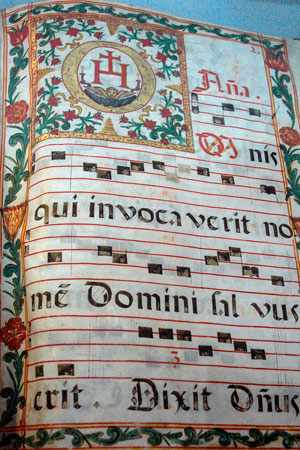 Aña.
OM nis
qui invoca verit no
mẽ Domini sal vus
3
erit. Dixit Dñus